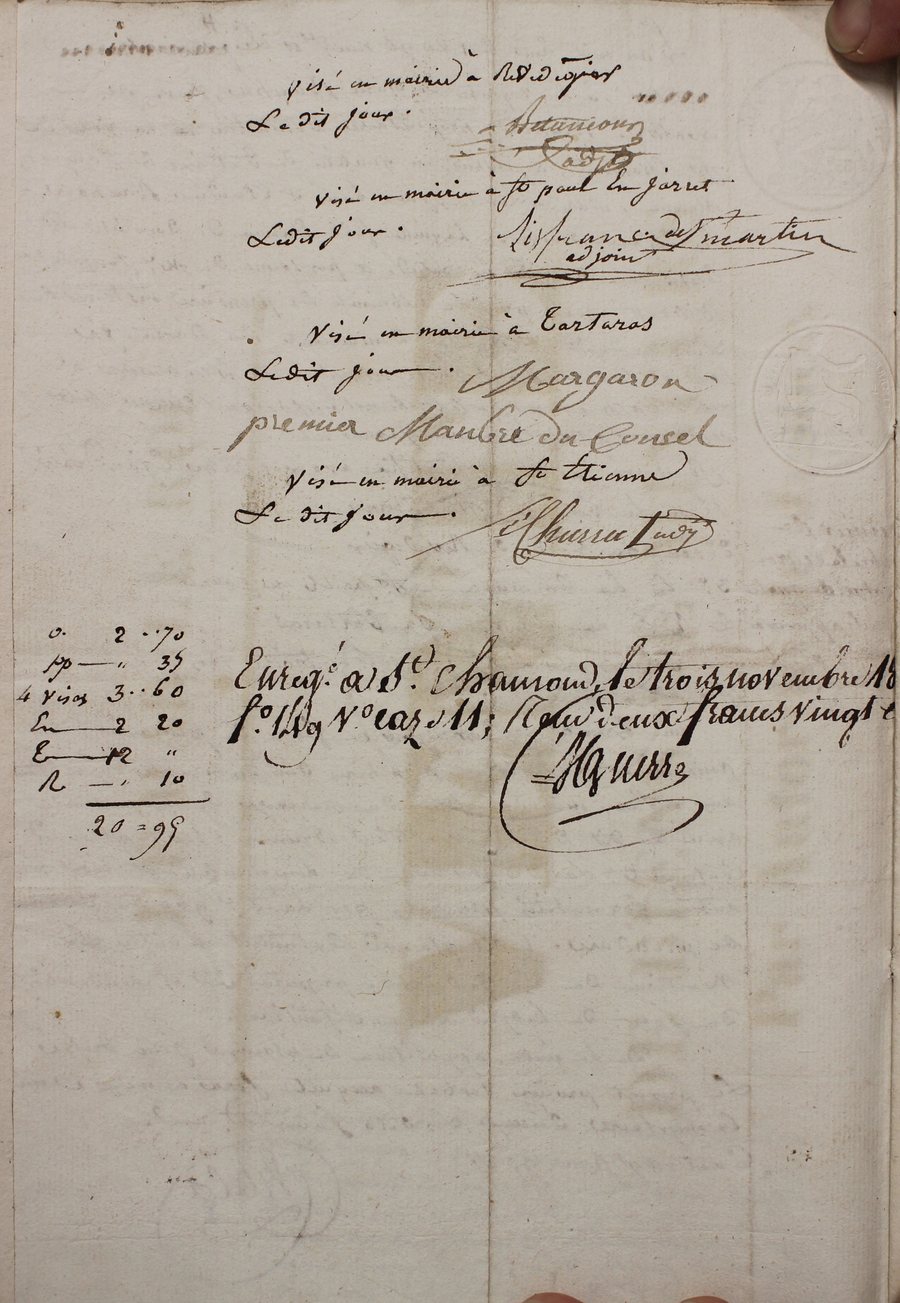 Visé en mairie à Rivedegier
Le dit jour.
Bétancour
adjt
Visé en mairie à St paul En Jarret
Ledit Jour.
Lisfranc de St martin
adjoint
Visé en mairie à Tartaras
Ledit jour.
Margaron
premier Manbre du Consel
Visé en mairie à St Etienne
Le dit Jour.
adj
o. 2 .. 70
pp — " 35
4 Visas 3 .. 60
En — 2 20
E — 12 "
R — . 10
20 = 95
Enregé a St. Chamond, le trois novembre 18
fo. 149 Vo caze 11; Recu deux francs vingt c
Guerre